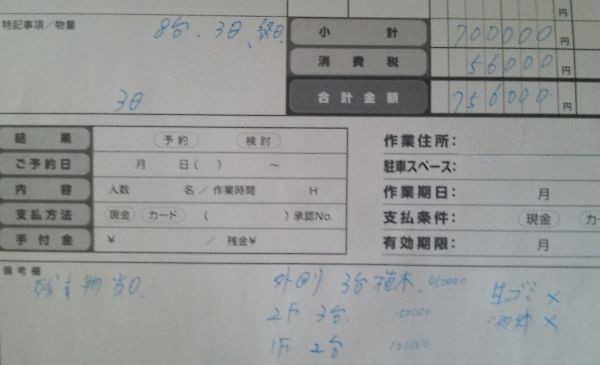 特記事項/物量
8台、3日、終日
3日
小計 700000 円
消費税 56000 円
合計金額 756000 円
結果 予約 検討
ご予約日 月 日( ) ~
内容 人数 名/作業時間 H
支払方法 現金 カード ( )承認No.
手付金 ¥ /残金¥
作業住所:
駐車スペース:
作業期日: 月
支払条件: 現金 カー
有効期限: 月
備考欄
残す物 当日
外回り 3台 植木、450000
2F 3台 150000
1F 2台 100000
生ゴミ ×